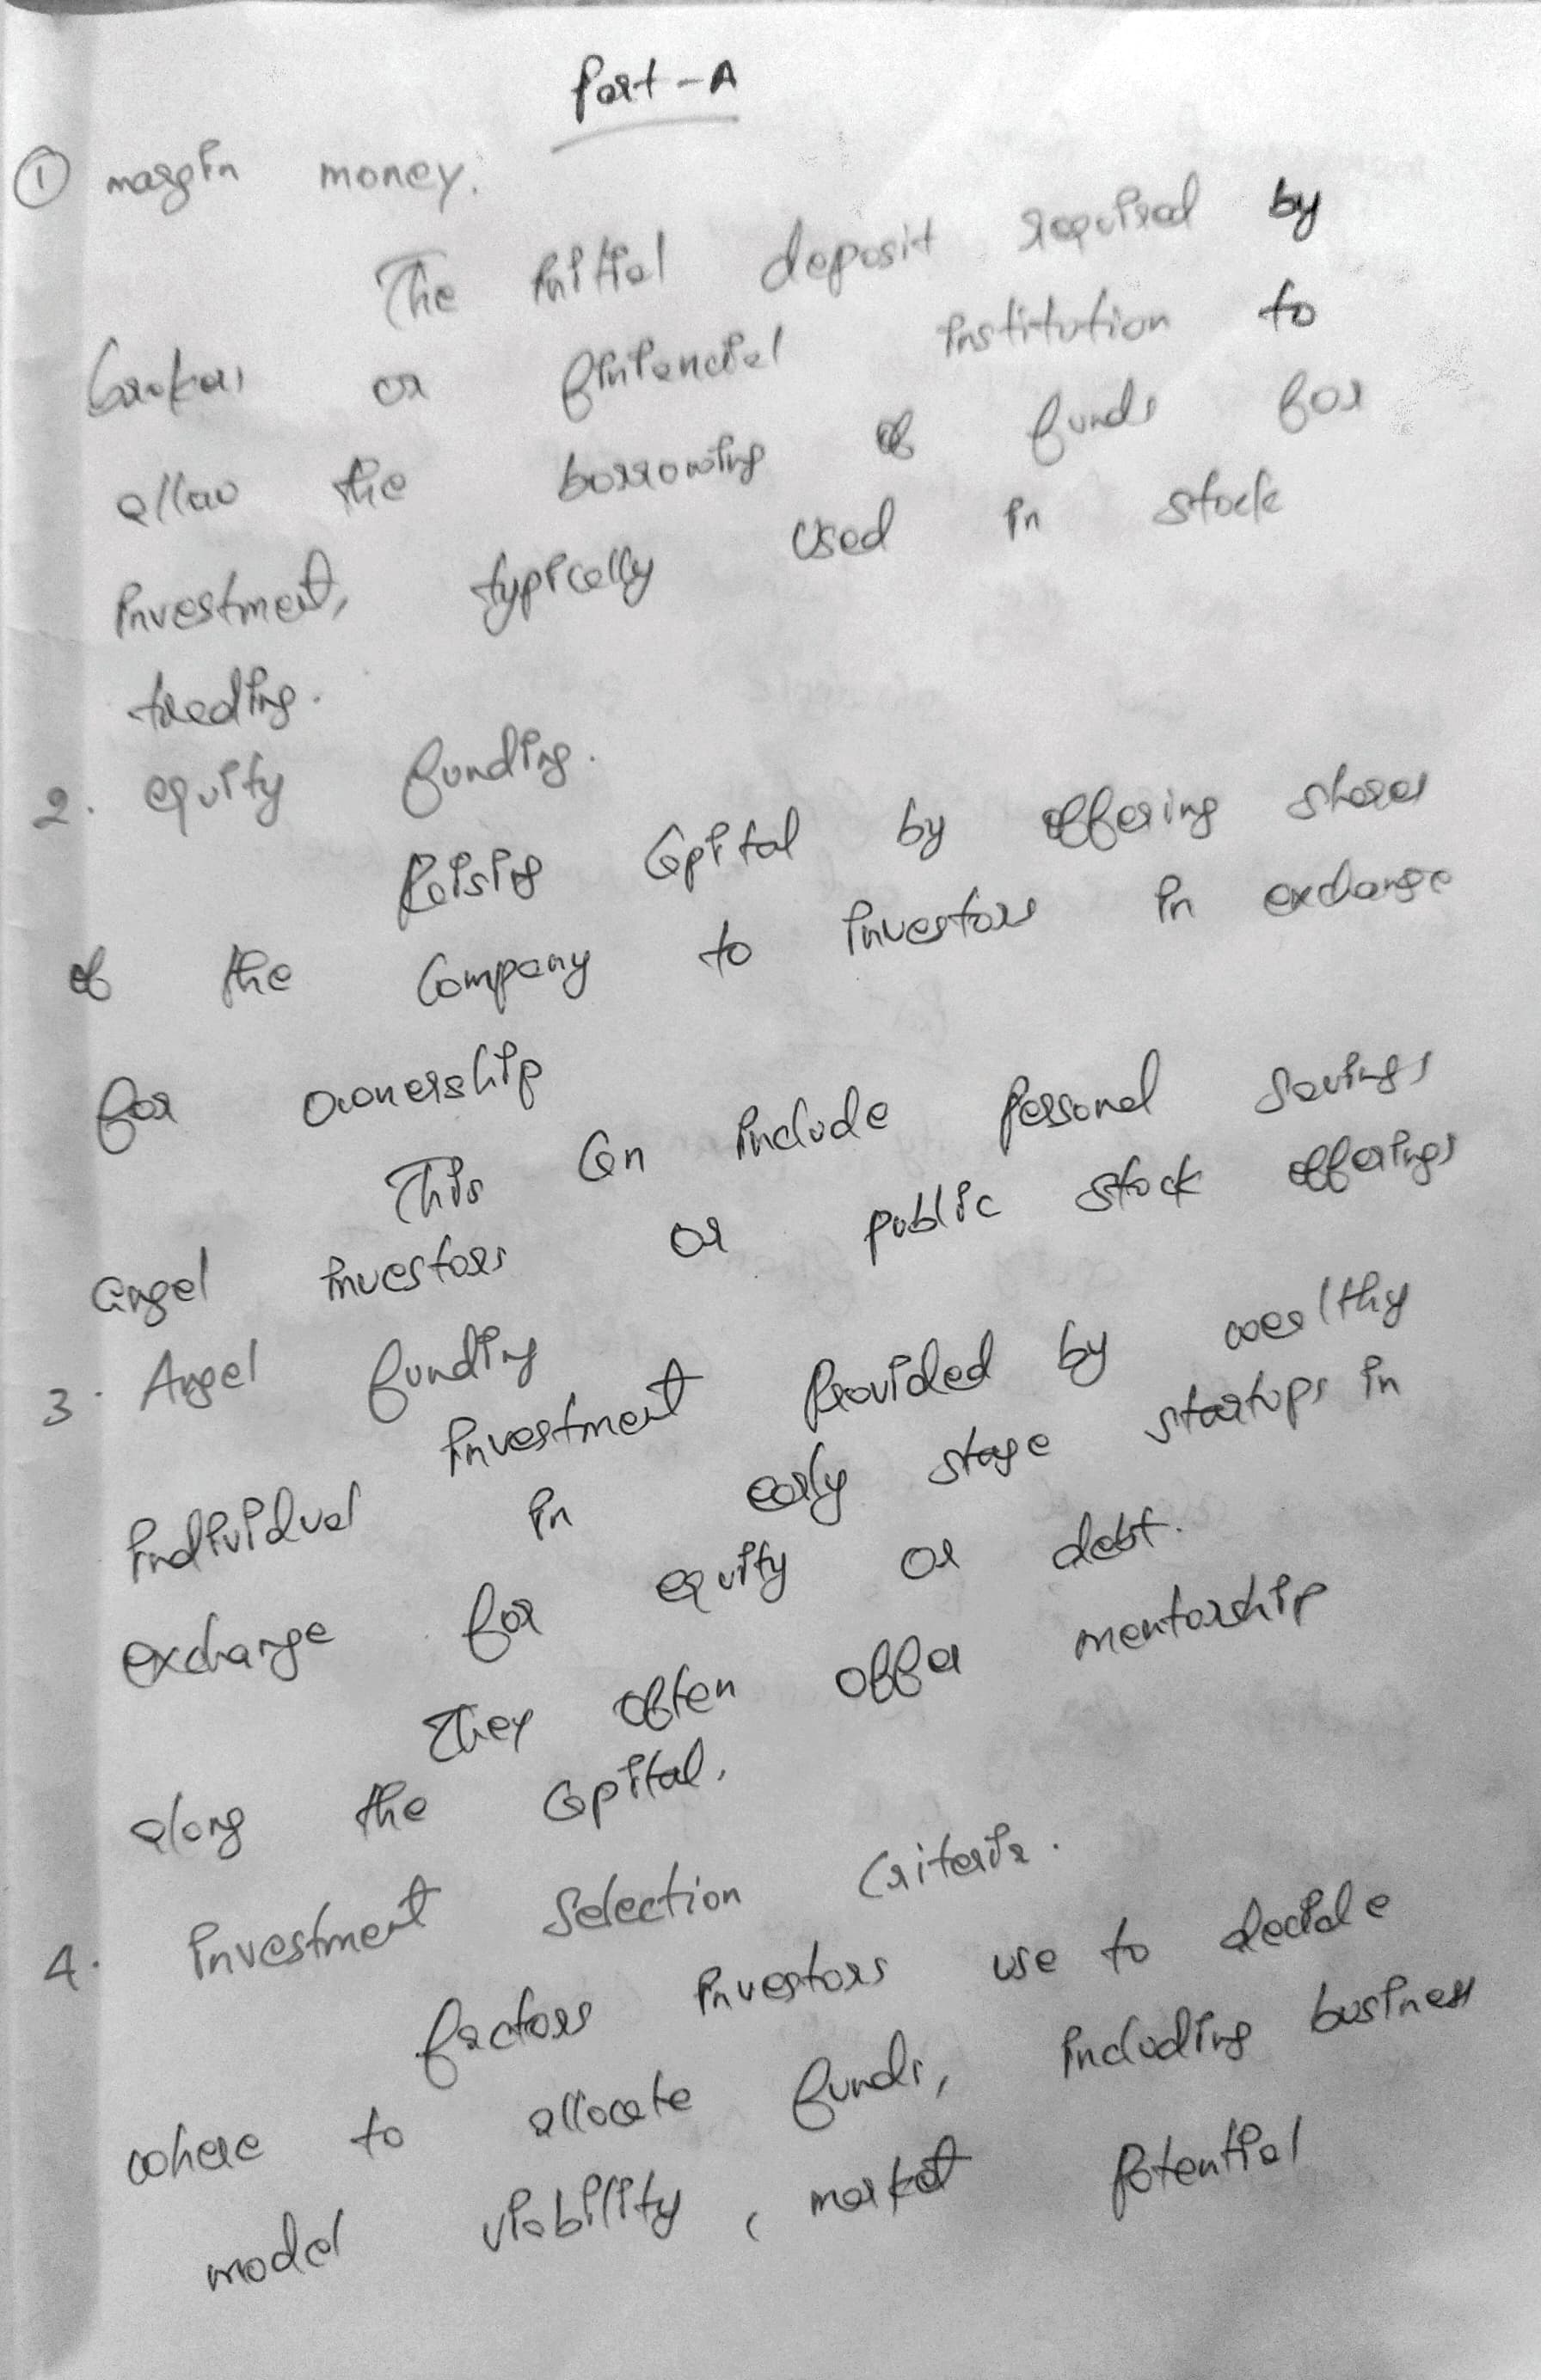 Part-A
① margin money.
The initial deposit required by
brokers or finiancial institution to
allow the borrowing of funds for
investment, typically used in stock
treding.
2. equity funding.
Raising Capital by offering shares
of the Company to investors in exchange
for ownership
This Can include Personal Savings
angel investors or public stock offerings
3. Angel funding
investment Provided by wealthy
individual in early stage startups in
exchange for equity or debt.
They often offer mentorship
along the Capital.
4. Investment Selection Criteria.
factors investors use to decide
where to allocate funds, including business
model viability, market Potential